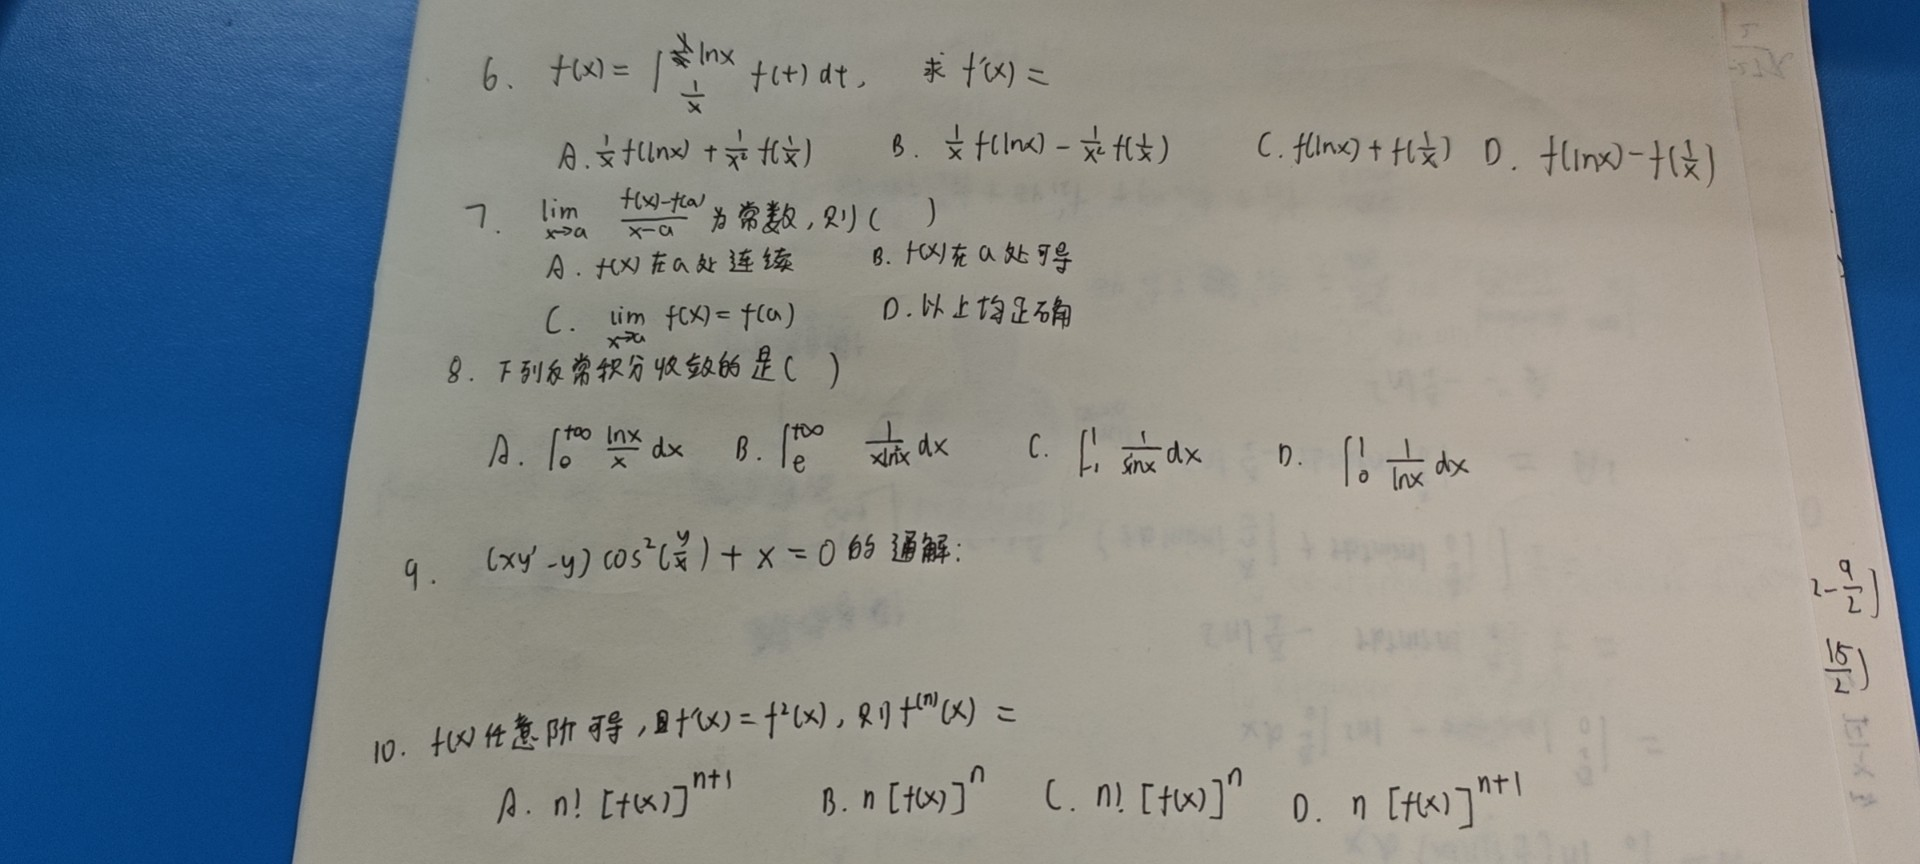 6. f(x) = ∫_{1/x}^{lnx} f(t) dt, 求 f'(x) =
A. 1/x f(lnx) + 1/x² f(1/x) B. 1/x f(lnx) - 1/x² f(1/x) C. f(lnx) + f(1/x) D. f(lnx) - f(1/x)
7. lim_{x→a} (f(x)-f(a))/(x-a) 为常数, 则( )
A. f(x)在a处连续 B. f(x)在a处可导
C. lim_{x→a} f(x) = f(a) D. 以上均正确
8. 下列反常积分收敛的是( )
A. ∫_0^{+∞} lnx/x dx B. ∫_e^{+∞} 1/(xln²x) dx C. ∫_{-1}^1 1/sinx dx D. ∫_0^1 1/lnx dx
9. (xy'-y) cos²(y/x) + x = 0 的通解:
10. f(x)任意阶可导, 且f'(x) = f²(x), 则f^{(n)}(x) =
A. n! [f(x)]^{n+1} B. n [f(x)]^n C. n! [f(x)]^n D. n [f(x)]^{n+1}
2-9/2]
15/2)